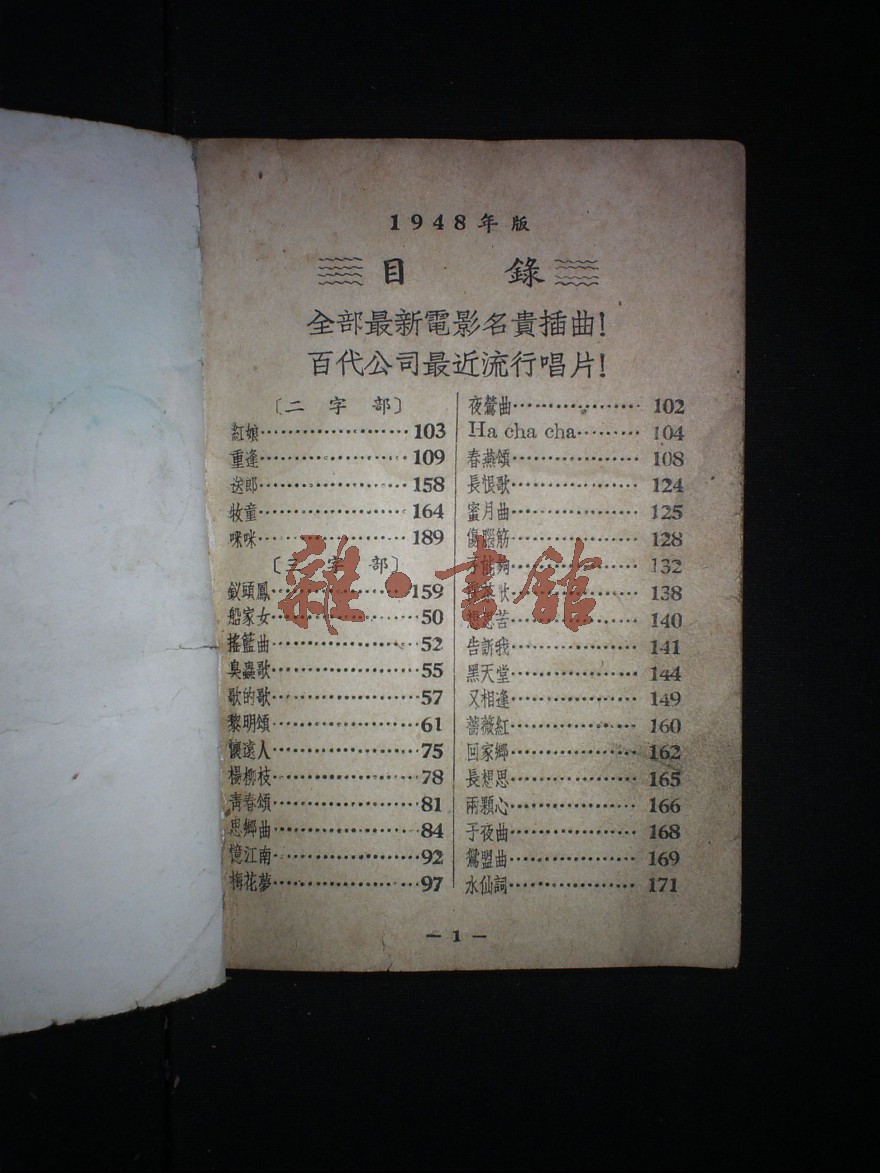 1948年版
目錄
全部最新電影名貴插曲!
百代公司最近流行唱片!
〔二字部〕
紅娘 103
重逢 109
送郎 158
牧童 164
咪咪 189
〔三字部〕
釵頭鳳 159
船家女 50
搖籃曲 52
臭蟲歌 55
歌的歌 57
黎明頌 61
懷遠人 75
楊柳枝 78
青春頌 81
思鄉曲 84
憶江南 92
梅花夢 97
夜鶯曲 102
Ha cha cha 104
春燕頌 108
長恨歌 124
蜜月曲 125
傷腦筋 128
132
138
苦 140
告訴我 141
黑天堂 144
又相逢 149
薔薇紅 160
回家鄉 162
長想思 165
兩顆心 166
子夜曲 168
鴛盟曲 169
水仙詞 171
— 1 —
雜·書館